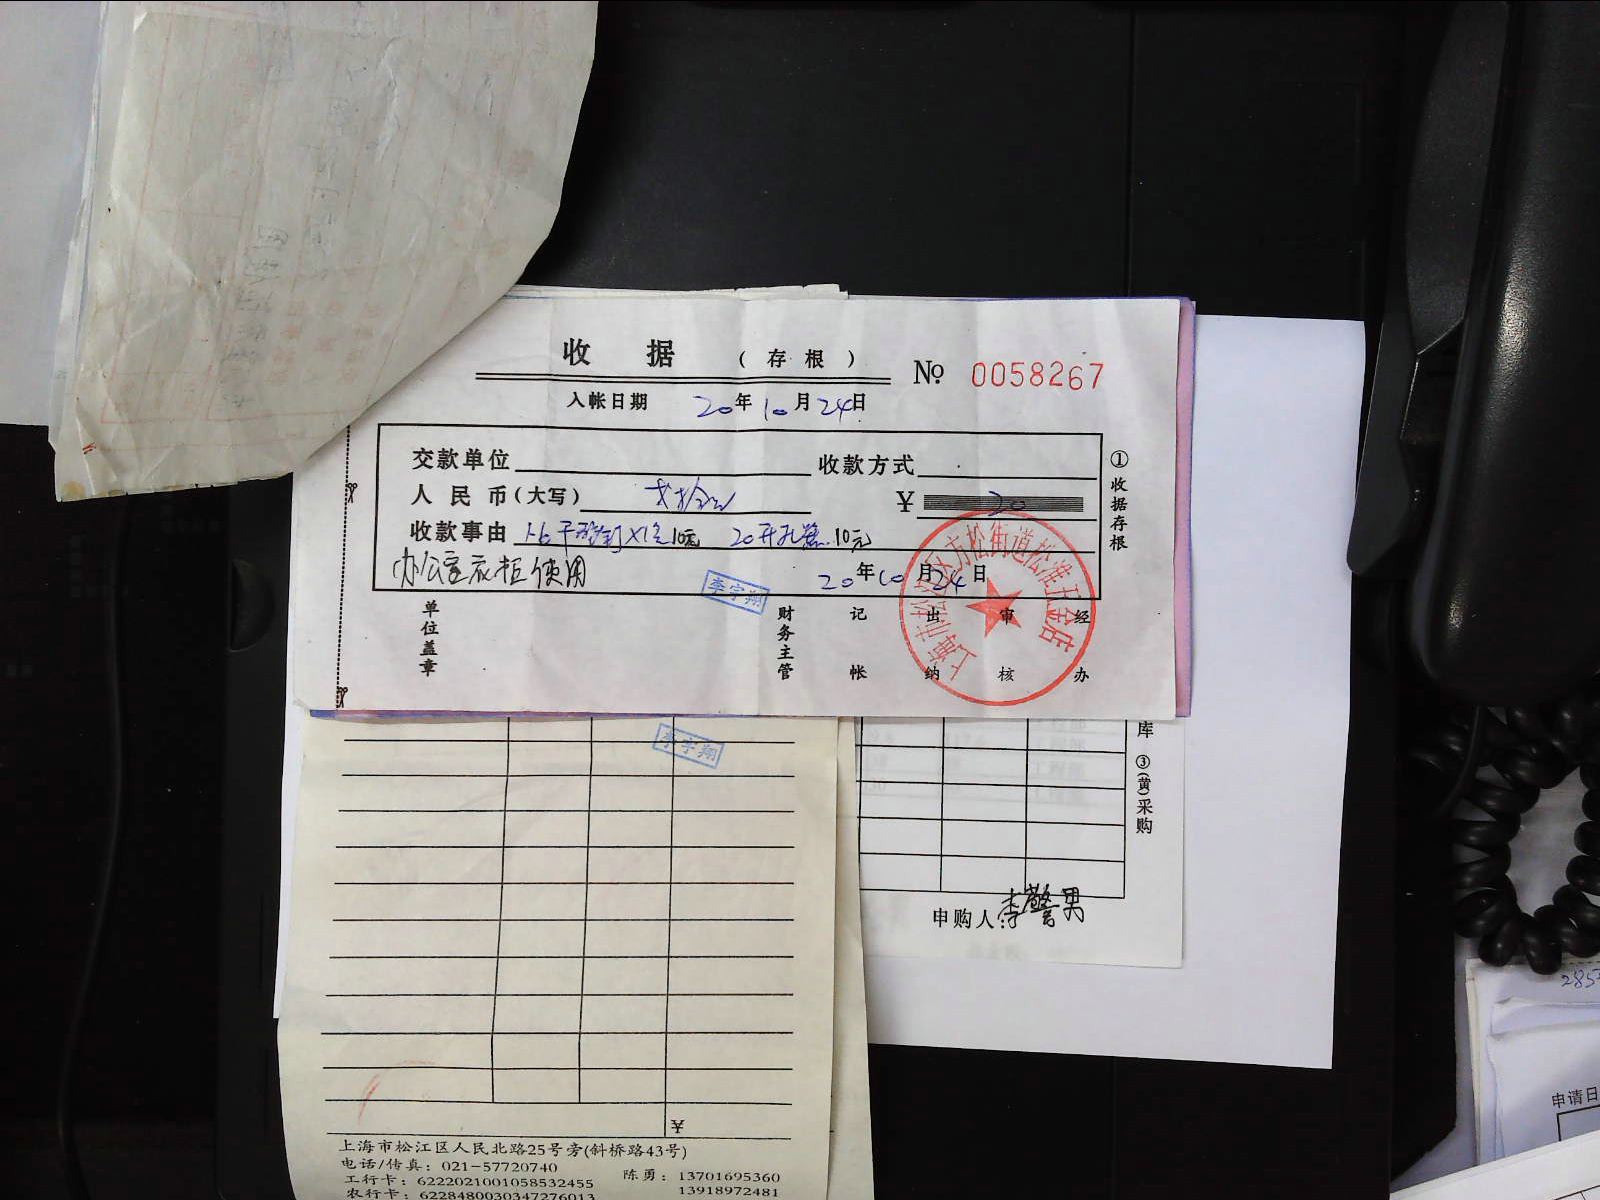 收 据 （存根） № 0058267
入帐日期 20年10月24日
交款单位 收款方式
人民币（大写） ¥ 20
收款事由 10元 20开孔器 10元
办公室衣柜使用
20年10月24日
李宇翔
单位盖章 财务主管 记帐 出纳 审核 经办
①收据存根
上海市松江区方松街道松淮五金店
李宇翔
库 ③(黄)采购
申购人:李警男
¥
上海市松江区人民北路25号旁(斜桥路43号)
电话/传真：021-57720740 陈勇：13701695360
工行卡：6222021001058532455 13918972481
农行卡：6228480030347276013
285
申请日